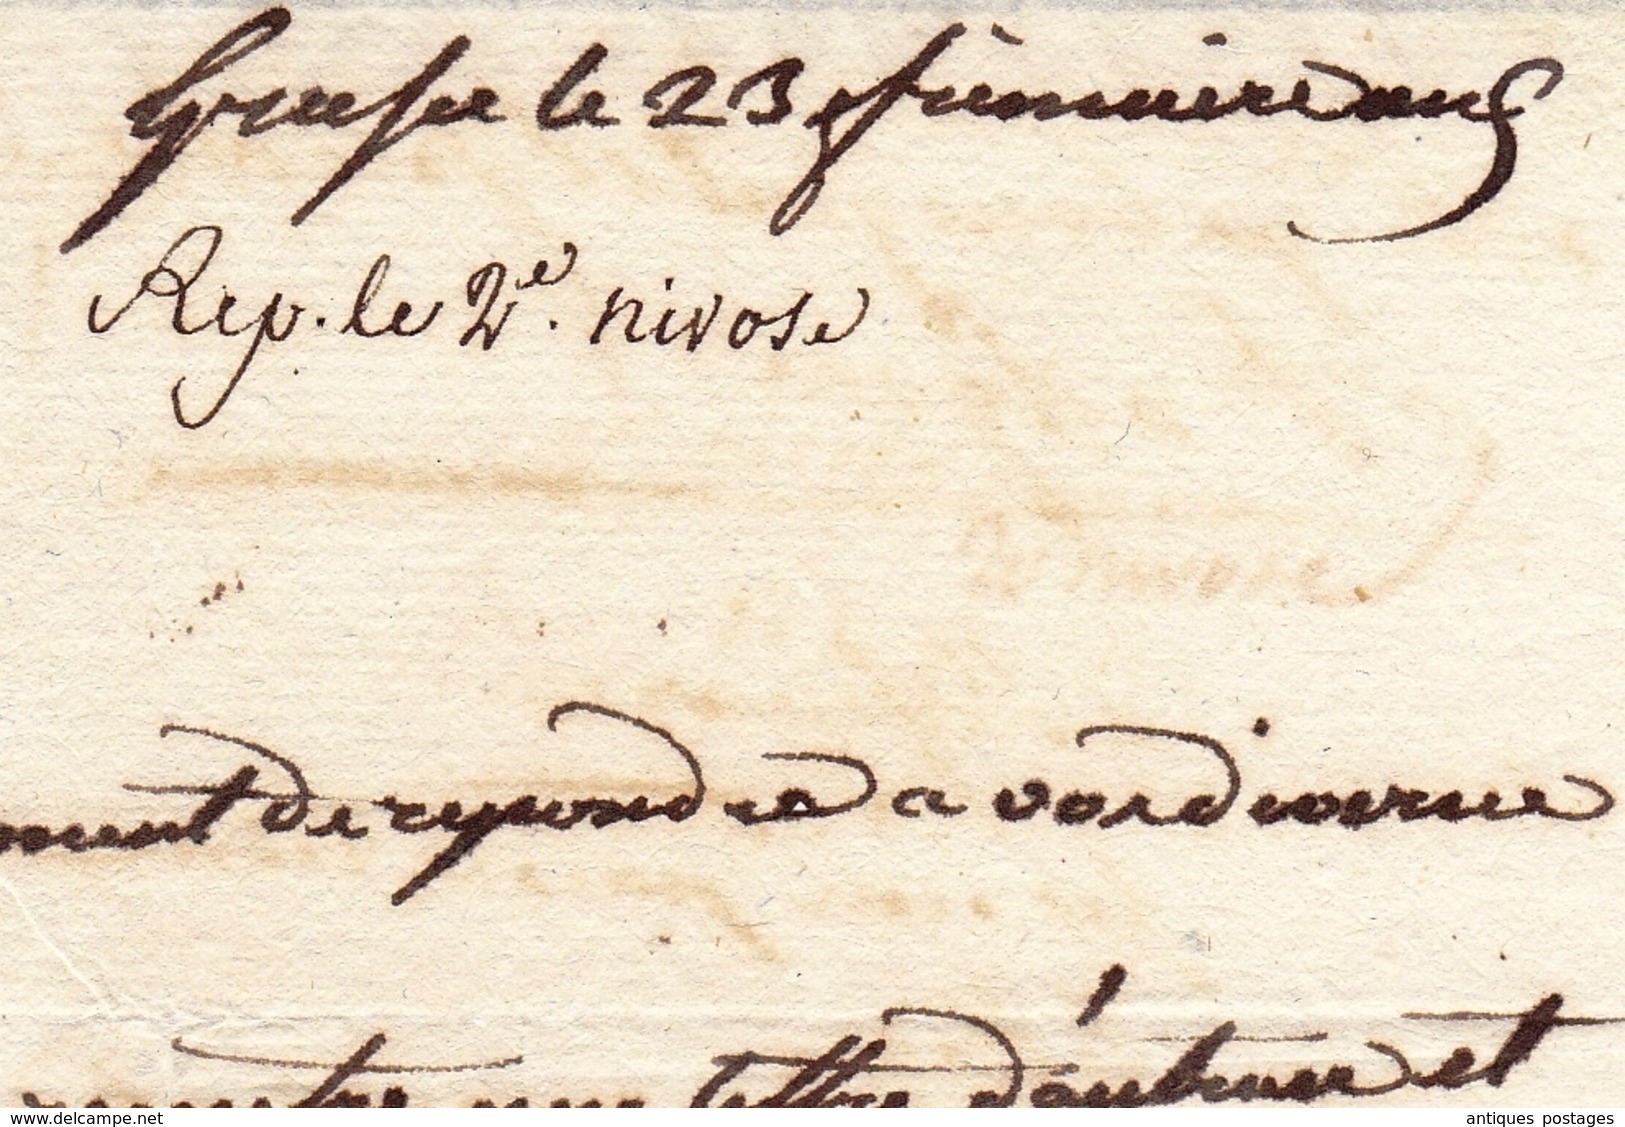 Grasse le 23 frimaire an 5
Rep. le 2e. nivose
ment de repondre a vos diverse
une lettre d'autrui et
www.delcampe.net
antiques postages